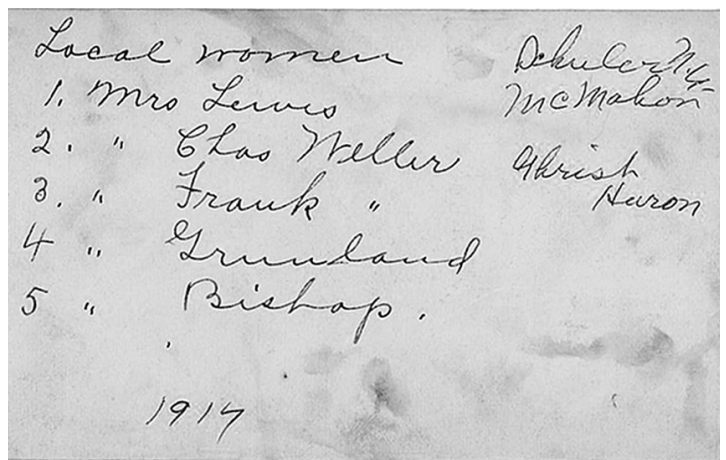 Local women
1. Mrs Lewis
2. " Chas Weller
3. " Frank "
4 " Grunland
5 " Bishop.
1917
McMahon
Christ
Huron